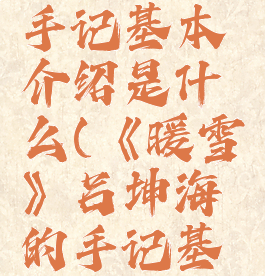 手记基本
介绍是什
么(《暖雪
》吕坤海
的手记基